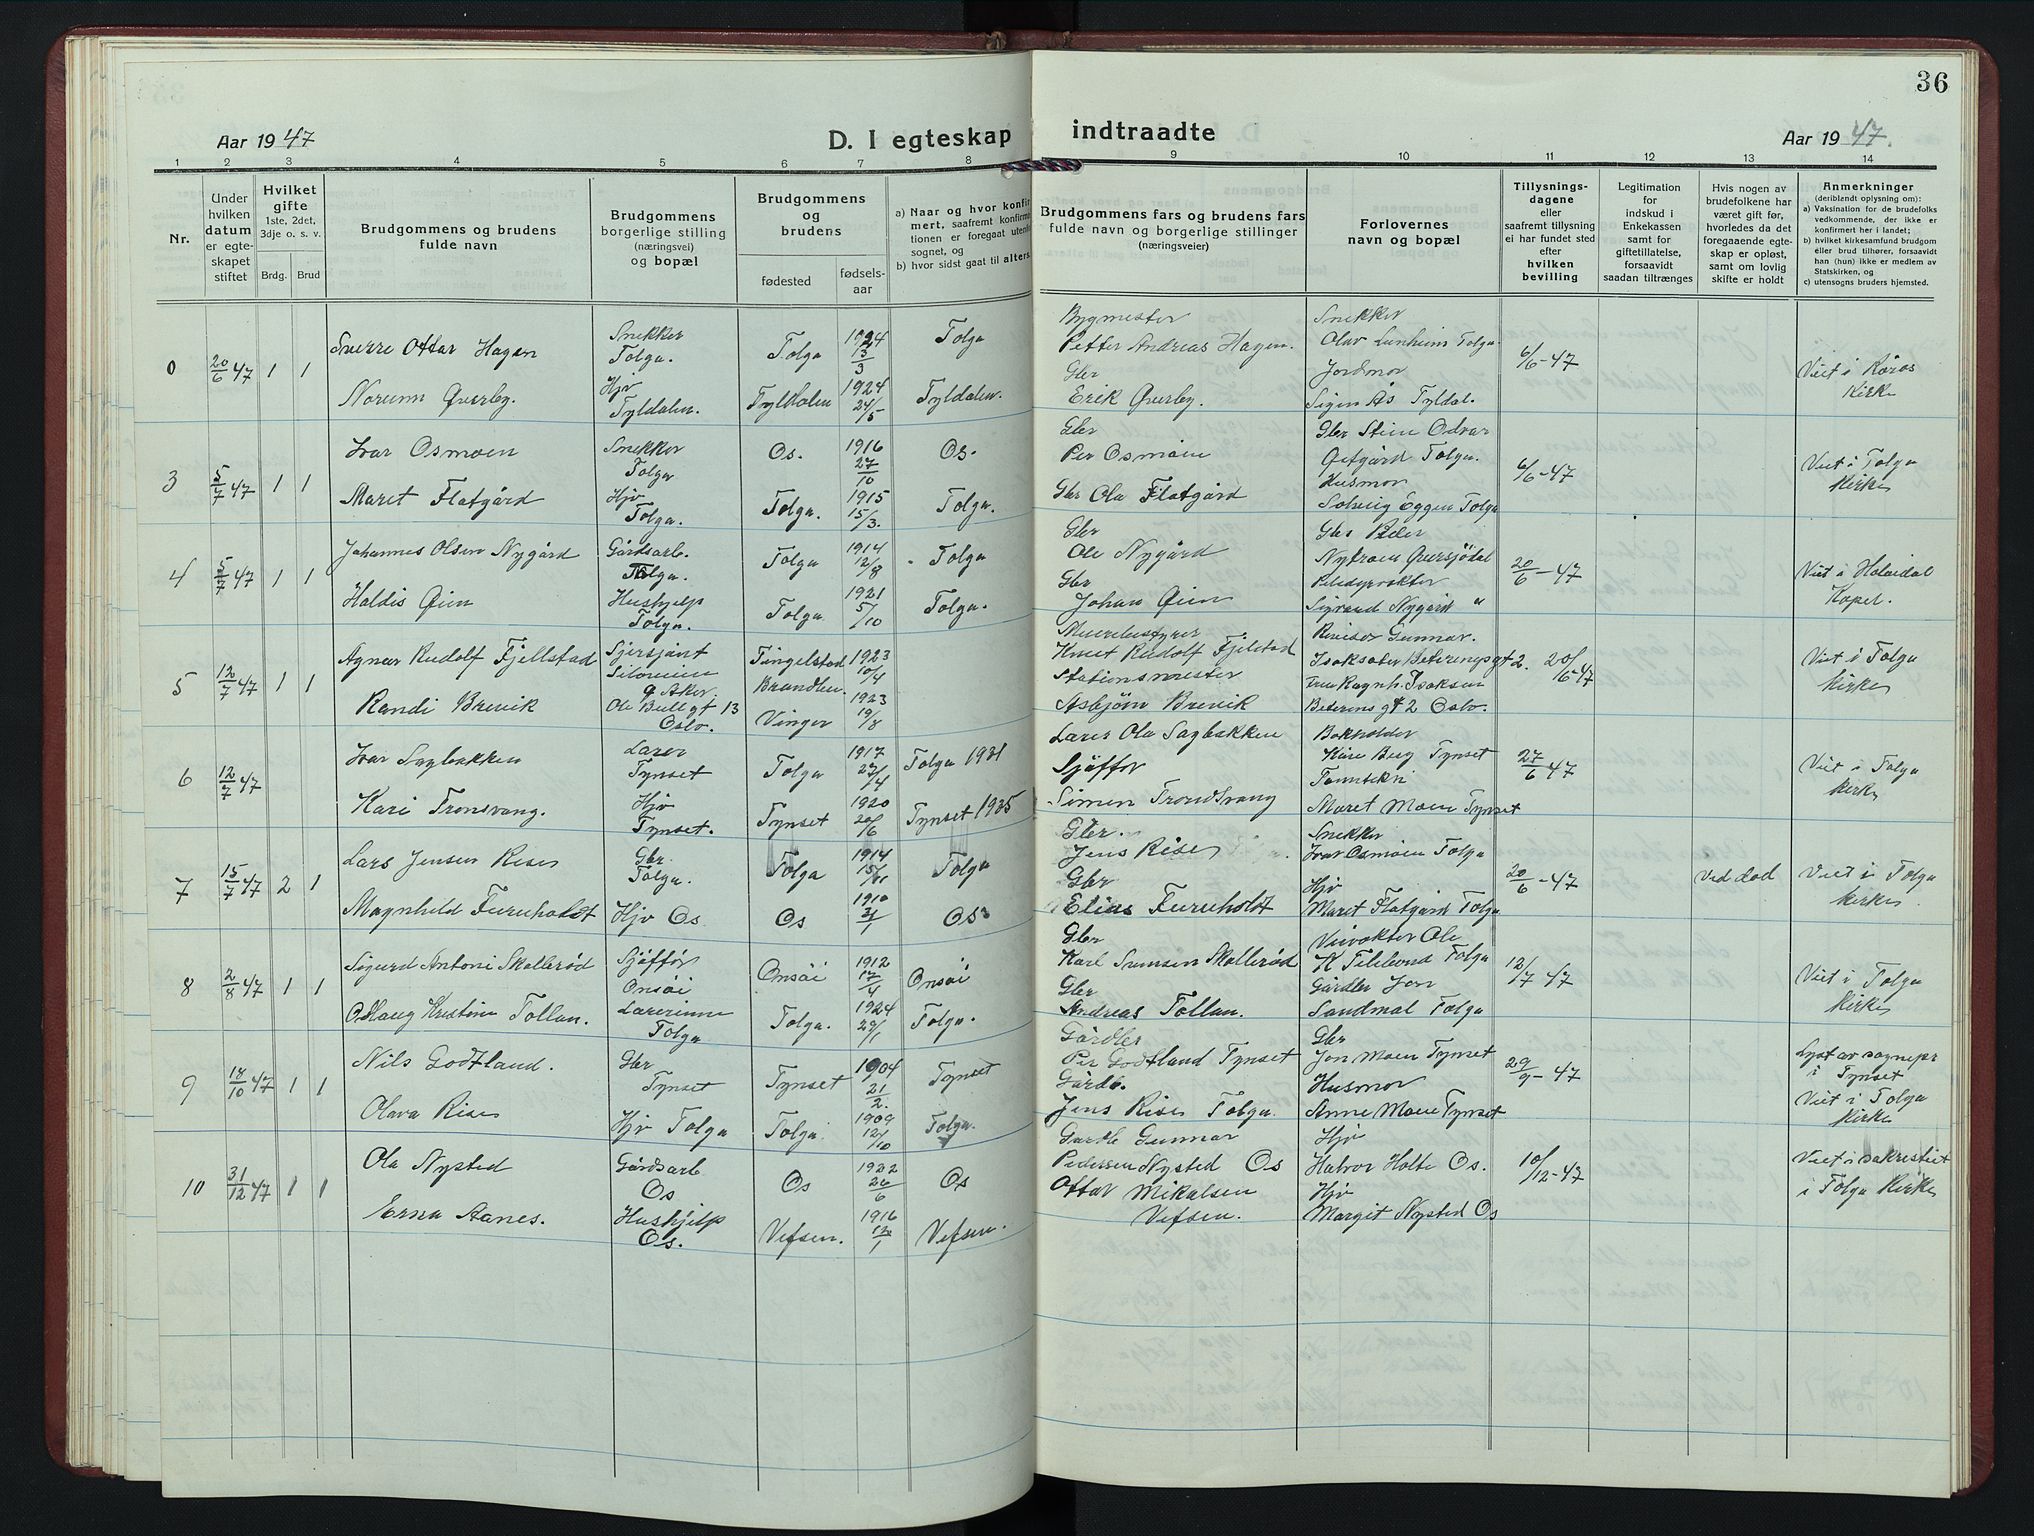 36
Aar 1947
D. I egteskap indtraadte
Aar 1947.
1 2 3 4 5 6 7 8 9 10 11 12 13 14
Nr.
Under hvilken datum er egteskapet stiftet
Hvilket gifte
1ste, 2det, 3dje o. s. v.
Brdg. Brud
Brudgommens og brudens fulde navn
Brudgommens borgerlige stilling (næringsvei) og bopæl
Brudgommens og brudens
fødested
fødselsaar
a) Naar og hvor konfirmert, saafremt konfirmationen er foregaat utenfor sognet, og
b) hvor sidst gaat til alters.
Brudgommens fars og brudens fars fulde navn og borgerlige stillinger (næringsveier)
Forlovernes navn og bopæl
Tillysningsdagene eller saafremt tillysning ei har fundet sted efter hvilken bevilling
Legitimation for indskud i Enkekassen samt for giftetillatelse, forsaavidt saadan tiltrænges
Hvis nogen av brudefolkene har været gift før, hvorledes da det foregaaende egteskap er opløst, samt om lovlig skifte er holdt
Anmerkninger (deriblandt oplysning om):
a) Vaksination for de brudefolks vedkommende, der ikke er konfirmert her i landet;
b) hvilket kirkesamfund brudgom eller brud tilhører, forsaavidt han (hun) ikke er medlem av Statskirken, og
c) utensogns bruders hjemsted.
0 20/6 47 1 1
Sverre Ottar Hagen
Snekker Tolga.
Tolga 1924 13/3 Tolga
Bygmester Petter Andreas Hagen.
Snekker Olav Tolga.
6/6-47
Viet i Røros Kirke
Norunn Øverby.
Hjv Tyldalen.
Tyldalen 1924 24/5 Tyldalen.
Gbr Erik Øverby.
Jordmor Signe Ås Tyldal.
3 5/7 47 1 1
Ivar Osmoen
Snekker Tolga
Os. 1916 27/10 Os.
Gbr Per Osmoen
Gbr Stein Odvar Tolga.
6/6-47
Viet i Tolga Kirke
Maret Flatgård
Hjv Tolga.
Tolga. 1915 15/3. Tolga.
Gbr Ola Flatgård
Husmor Solveig Eggen Tolga
4 5/7 47 1 1
Johannes Olsen Nygård
Gårdsarb. Tolga.
Tolga 1914 12/8 Tolga
Gbr Ole Nygård
Gbr Peder Nytrøen Øversjødal
20/6-47
Viet i Holøidal Kapel.
Haldis Øien
Hushjelp Tolga.
Tolga 1921 5/10 Tolga.
Gbr Johan Øien
Sigvard Nygård "
5 12/7 47 1 1
Agnar Rudolf Fjellstad
Sjersjant
Tingelstad Brandbu. 1923 10/4
Knut Rudolf Fjelstad
Revisor Gunnar. gt 2.
20/6-47
Viet i Tolga Kirke
Randi Brevik
Ole Bull gt 13 Oslo.
Vinger 1923 19/8
Stationsmester Asbjørn Brevik
Fru Ragnh. Isaksen gt 2 Oslo.
6 12/7 47
Ivar Sagbakken
Lærer Tynset
Tolga 1917 27/4 Tolga 1931
Lærer Ola Sagbakken
Bokholder Kåre Berg Tynset
27/6 47
Viet i Tolga Kirke
Kari Tronsvang.
Hjv Tynset.
Tynset 1920 20/6 Tynset 1935
Sjåffør Simen Trondsvang
Maret Moen Tynset
7 15/7 47 2 1
Lars Jensen Risen
Gbr. Tolga.
Tolga 1914 Tolga
Gbr. Jens Risen
Snekker Ivar Osmoen Tolga
20/6-47
Ved død
Viet i Tolga Kirke
Magnhild Furuholdt
Hjv Os
Os 1910 Os
Gbr Elias Furuholdt
Hjv Maret Flatgård Tolga
8 2/8 47 1 1
Sigurd Antoni Skallerød
Sjåffør Onsøi
Onsøi 1912 17/4 Onsøi
Gbr Karl Skallerød
Veivokter Ole K Tolga
12/7 47
Viet i Tolga Kirke
Odlaug Kristine Tollan.
Lærerinne Tolga
Tolga. 1924 29/1 Tolga.
Gbr Andreas Tollan.
Gårdbr Jon Sandmæl Tolga
9 18/10 47 1 1
Nils Godtland.
Gbr Tynset
Tynset 1904 21/2. Tynset
Gårdbr Per Godtland Tynset
Gbr Jon Moen Tynset
29/9-47
Lyst av sognepr i Tynset Viet i Tolga Kirke
Olava Risen
Hjv Tolga
Tolga 1909 12/10 Tolga.
Gårdb. Jens Risen Tolga.
Husmor Anne Moen Tynset
10 31/12 47 1 1
Ola Nysted
Gårdsarb Os
Os 1922 26/6 Os
Gardb Gunnar Pedersen Nysted Os
Hjv Halvor Holte Os.
10/12-47
Viet i sakrestiet i Tolga Kirke
Erna Aanes.
Hushjelp Os.
Vefsen. 1916 12/1 Vefsen.
Ottar Mikalsen Vefsen.
Hjv Margit Nysted Os